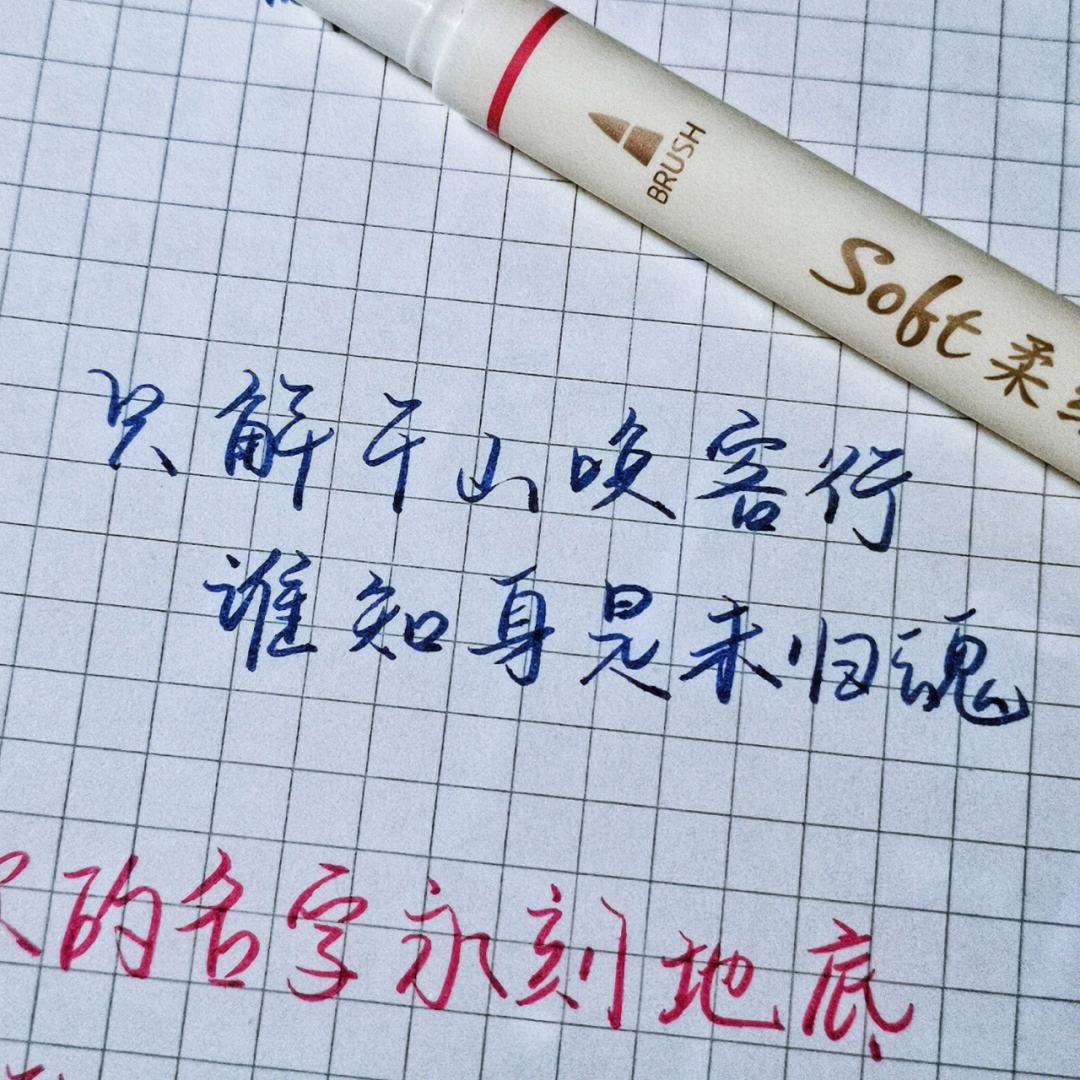 BRUSH
Soft 柔
只解千山唤客行
谁知身是未归魂
的名字永刻地底